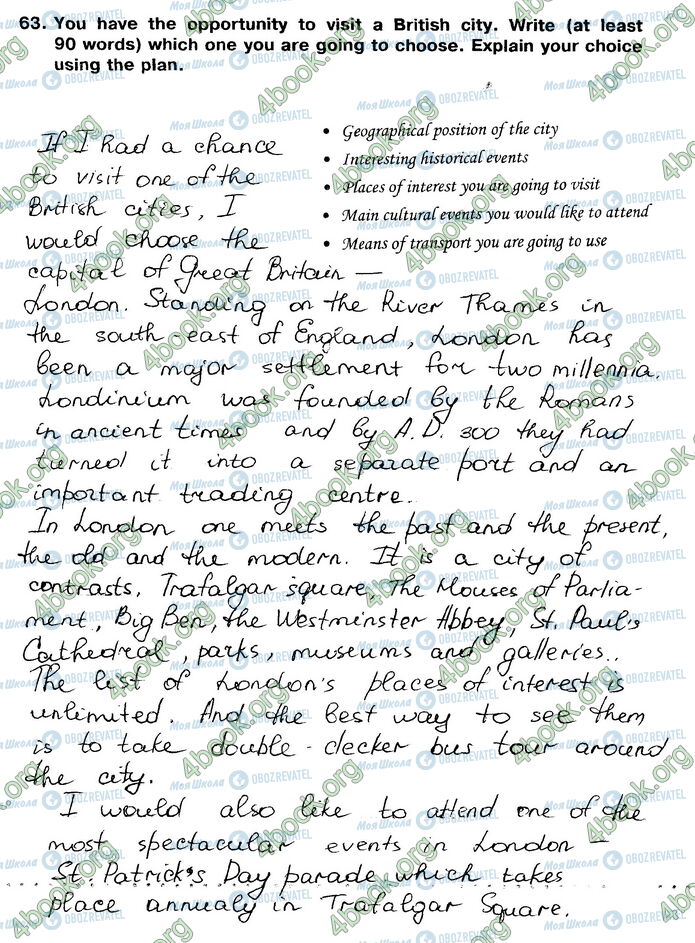 63. You have the opportunity to visit a British city. Write (at least
90 words) which one you are going to choose. Explain your choice
using the plan.
• Geographical position of the city
• Interesting historical events
• Places of interest you are going to visit
• Main cultural events you would like to attend
• Means of transport you are going to use
If I had a chance
to visit one of the
British cities, I
would choose the
capital of Great Britain —
London. Standing on the River Thames in
the south east of England, London has
been a major settlement for two millennia.
Londinium was founded by the Romans
in ancient times and by A.D. 300 they had
turned it into a separate port and an
important trading centre.
In London one meets the past and the present,
the old and the modern. It is a city of
contrasts, Trafalgar square, the Houses of Parlia-
ment, Big Ben, the Westminster Abbey, St. Paul's
Cathedral, parks, museums and galleries..
The list of London's places of interest is
unlimited. And the best way to see them
is to take double-decker bus tour around
the city.
I would also like to attend one of the
most spectacular events in London –
St. Patrick's Day parade which takes
place annualy in Trafalgar Square.
МОЯ ШКОЛА OBOZREVATEL
4book.org